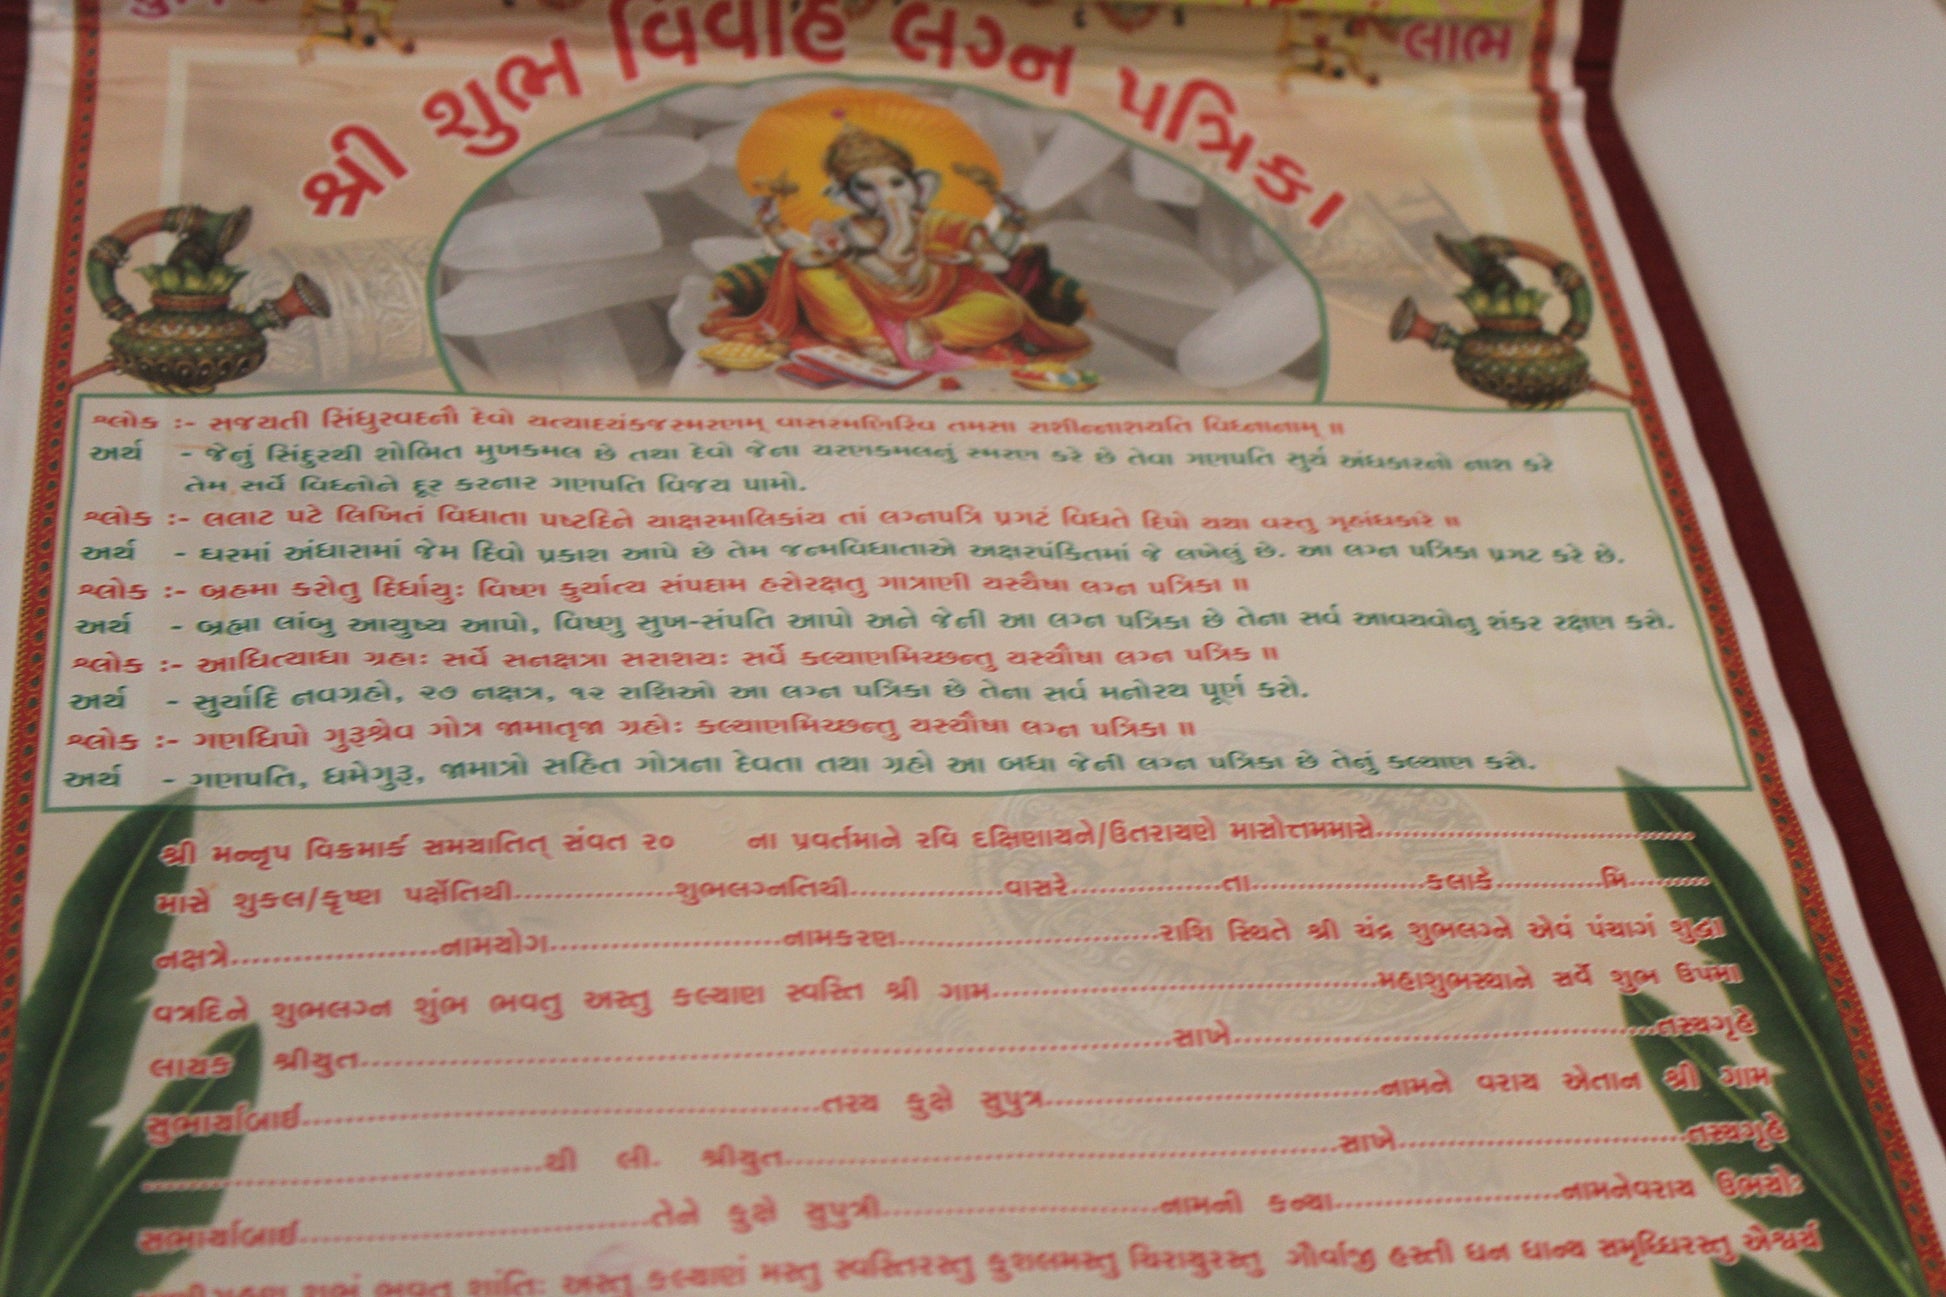 લાભ
શ્રી શુભ વિવાહ લગ્ન પત્રિકા
શ્લોક :- સજયતી સિંધુરવદનૌ દેવો યત્યાદયંકજસ્મરણમ્ વાસરમણિરિવ તમસા રાશીન્નાશયતિ વિઘ્નાનામ્ ॥
અર્થ - જેનું સિંદુરથી શોભિત મુખકમલ છે તથા દેવો જેના ચરણકમલનું સ્મરણ કરે છે તેવા ગણપતિ સુર્ય અંધકારનો નાશ કરે
તેમ સર્વે વિઘ્નોને દૂર કરનાર ગણપતિ વિજય પામો.
શ્લોક :- લલાટ પટે લિખિતં વિધાતા પષ્ટદિને યાક્ષરમાલિકાંય તાં લગ્નપત્રિ પ્રગટં વિધતે દિપો યથા વસ્તુ ગૃહાંધકારે ॥
અર્થ - ઘરમાં અંધારામાં જેમ દિવો પ્રકાશ આપે છે તેમ જન્મવિધાતાએ અક્ષરપંકિતમાં જે લખેલું છે. આ લગ્ન પત્રિકા પ્રગટ કરે છે.
શ્લોક :- બ્રહમા કરોતુ દિર્ઘાયુઃ વિષ્ણ કુર્યાત્ય સંપદામ હરોરક્ષતુ ગાત્રાણી યસ્યૈષા લગ્ન પત્રિકા ॥
અર્થ - બ્રહ્મા લાંબુ આયુષ્ય આપો, વિષ્ણુ સુખ-સંપતિ આપો અને જેની આ લગ્ન પત્રિકા છે તેના સર્વ આવયવોનુ શંકર રક્ષણ કરો.
શ્લોક :- આધિત્યાધા ગ્રહાઃ સર્વે સનક્ષત્રા સરાશયઃ સર્વે કલ્યાણમિચ્છન્તુ યસ્યૌષા લગ્ન પત્રિક ॥
અર્થ - સુર્યાદિ નવગ્રહો, ૨૭ નક્ષત્ર, ૧૨ રાશિઓ આ લગ્ન પત્રિકા છે તેના સર્વ મનોરથ પૂર્ણ કરો.
શ્લોક :- ગણધિપો ગુરૂશ્રેવ ગોત્ર જામાતૃજા ગ્રહોઃ કલ્યાણમિચ્છન્તુ યસ્યૌષા લગ્ન પત્રિકા ॥
અર્થ - ગણપતિ, ધમેગુરૂ, જામાત્રો સહિત ગોત્રના દેવતા તથા ગ્રહો આ બધા જેની લગ્ન પત્રિકા છે તેનું કલ્યાણ કરો.
શ્રી મન્નૃપ વિક્રમાર્ક સમયાતિત્ સંવત ૨૦ ના પ્રવર્તમાને રવિ દક્ષિણાયને/ઉતરાયણે માસોત્તમમાસે..............................
માસે શુકલ/કૃષ્ણ પર્ક્ષેતિથી...............શુભલગ્નતિથી...............વાસરે...............તા...............કલાકે...............મિ.........
નક્ષત્રે....................નામયોગ....................નામકરણ....................રાશિ સ્થિતે શ્રી ચંદ્ર શુભલગ્ને એવં પંચાગં શુદ્ધા
વત્રદિને શુભલગ્ન શુંભ ભવતુ અસ્તુ કલ્યાણ સ્વસ્તિ શ્રી ગામ..............................મહાશુભસ્થાને સર્વે શુભ ઉપમા
લાયક શ્રીયુત..............................સાખે..............................તસ્યગૃહે
સુભાર્યાબાઈ..............................તસ્ય કુક્ષે સુપુત્ર..............................નામને વરાય એતાન શ્રી ગામ
..............................થી લી. શ્રીયુત..............................સાખે..............................તસ્યગૃહે
સભાર્યાબાઈ..............................તેને કુક્ષે સુપુત્રી..............................નામની કન્યા....................નામનેવરાય ઉભયોઃ
શુભં ભવતુ શાંતિઃ અસ્તુ કલ્યાણં મસ્તુ સ્વસ્તિરસ્તુ કુશલમસ્તુ ચિરાયુરસ્તુ ગૌર્વાજી હસ્તી ધન ધાન્ય સમૃધ્ધિરસ્તુ ઐશ્વર્ય